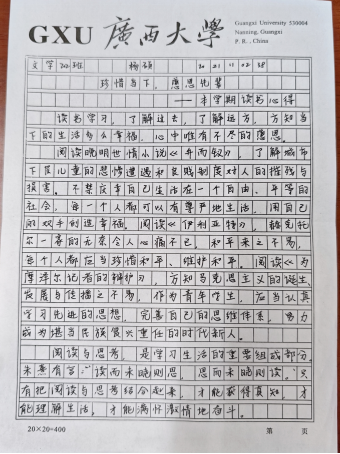 GXU 廣西大學
Guangxi University 530004
Nanning, Guangxi
P. R. China
文学202班 杨硕 20 21 11 02 38
珍惜当下，感恩先辈
——本学期读书心得
读书学习，了解过去，了解远方，方知当
下的生活多么幸福，心中唯有不尽的感恩。
阅读晚明世情小说《 》，了解城市
下层儿童的悲惨遭遇和良贱制度对人的摧残与
损害，不禁庆幸自己生活在一个自由、平等的
社会，每一个人都可以有尊严地生活，用自己
的双手创造幸福。阅读《伊利亚特》，赫克托
尔一幕的元素令人心痛不已，和平来之不易，
每个人都应当珍惜和平、维护和平。阅读《为
摩泽尔记者的辩护》，方知马克思主义的诞生
发展与传播之不易，作为青年学生，应当认真
学习先进的思想，完善自己的思维体系，努力
成为堪当民族复兴重任的时代新人。
阅读与思考，是学习生活的重要组成部分。
朱熹有言“读而未晓则思，思而未晓则读。”只
有把阅读与思考结合起来，才能获得真知，才
能理解生活，才能满怀激情地奋斗。
20×20=400
第 页